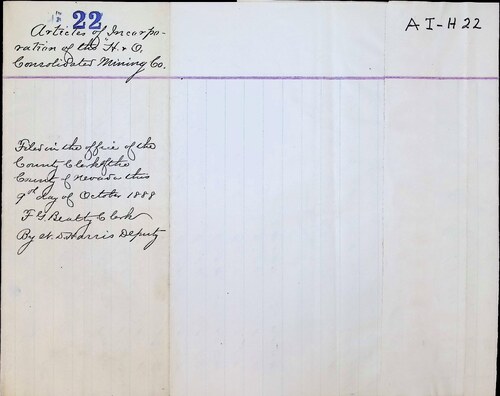 22
AI-H22
Articles of Incorpo-
ration of the "H & O.
Consolidated Mining Co.
Filed in the office of the
County Clerk of the
County of Nevada this
9th day of October 1888
F G Beatty Clerk
By W. D. Harris Deputy